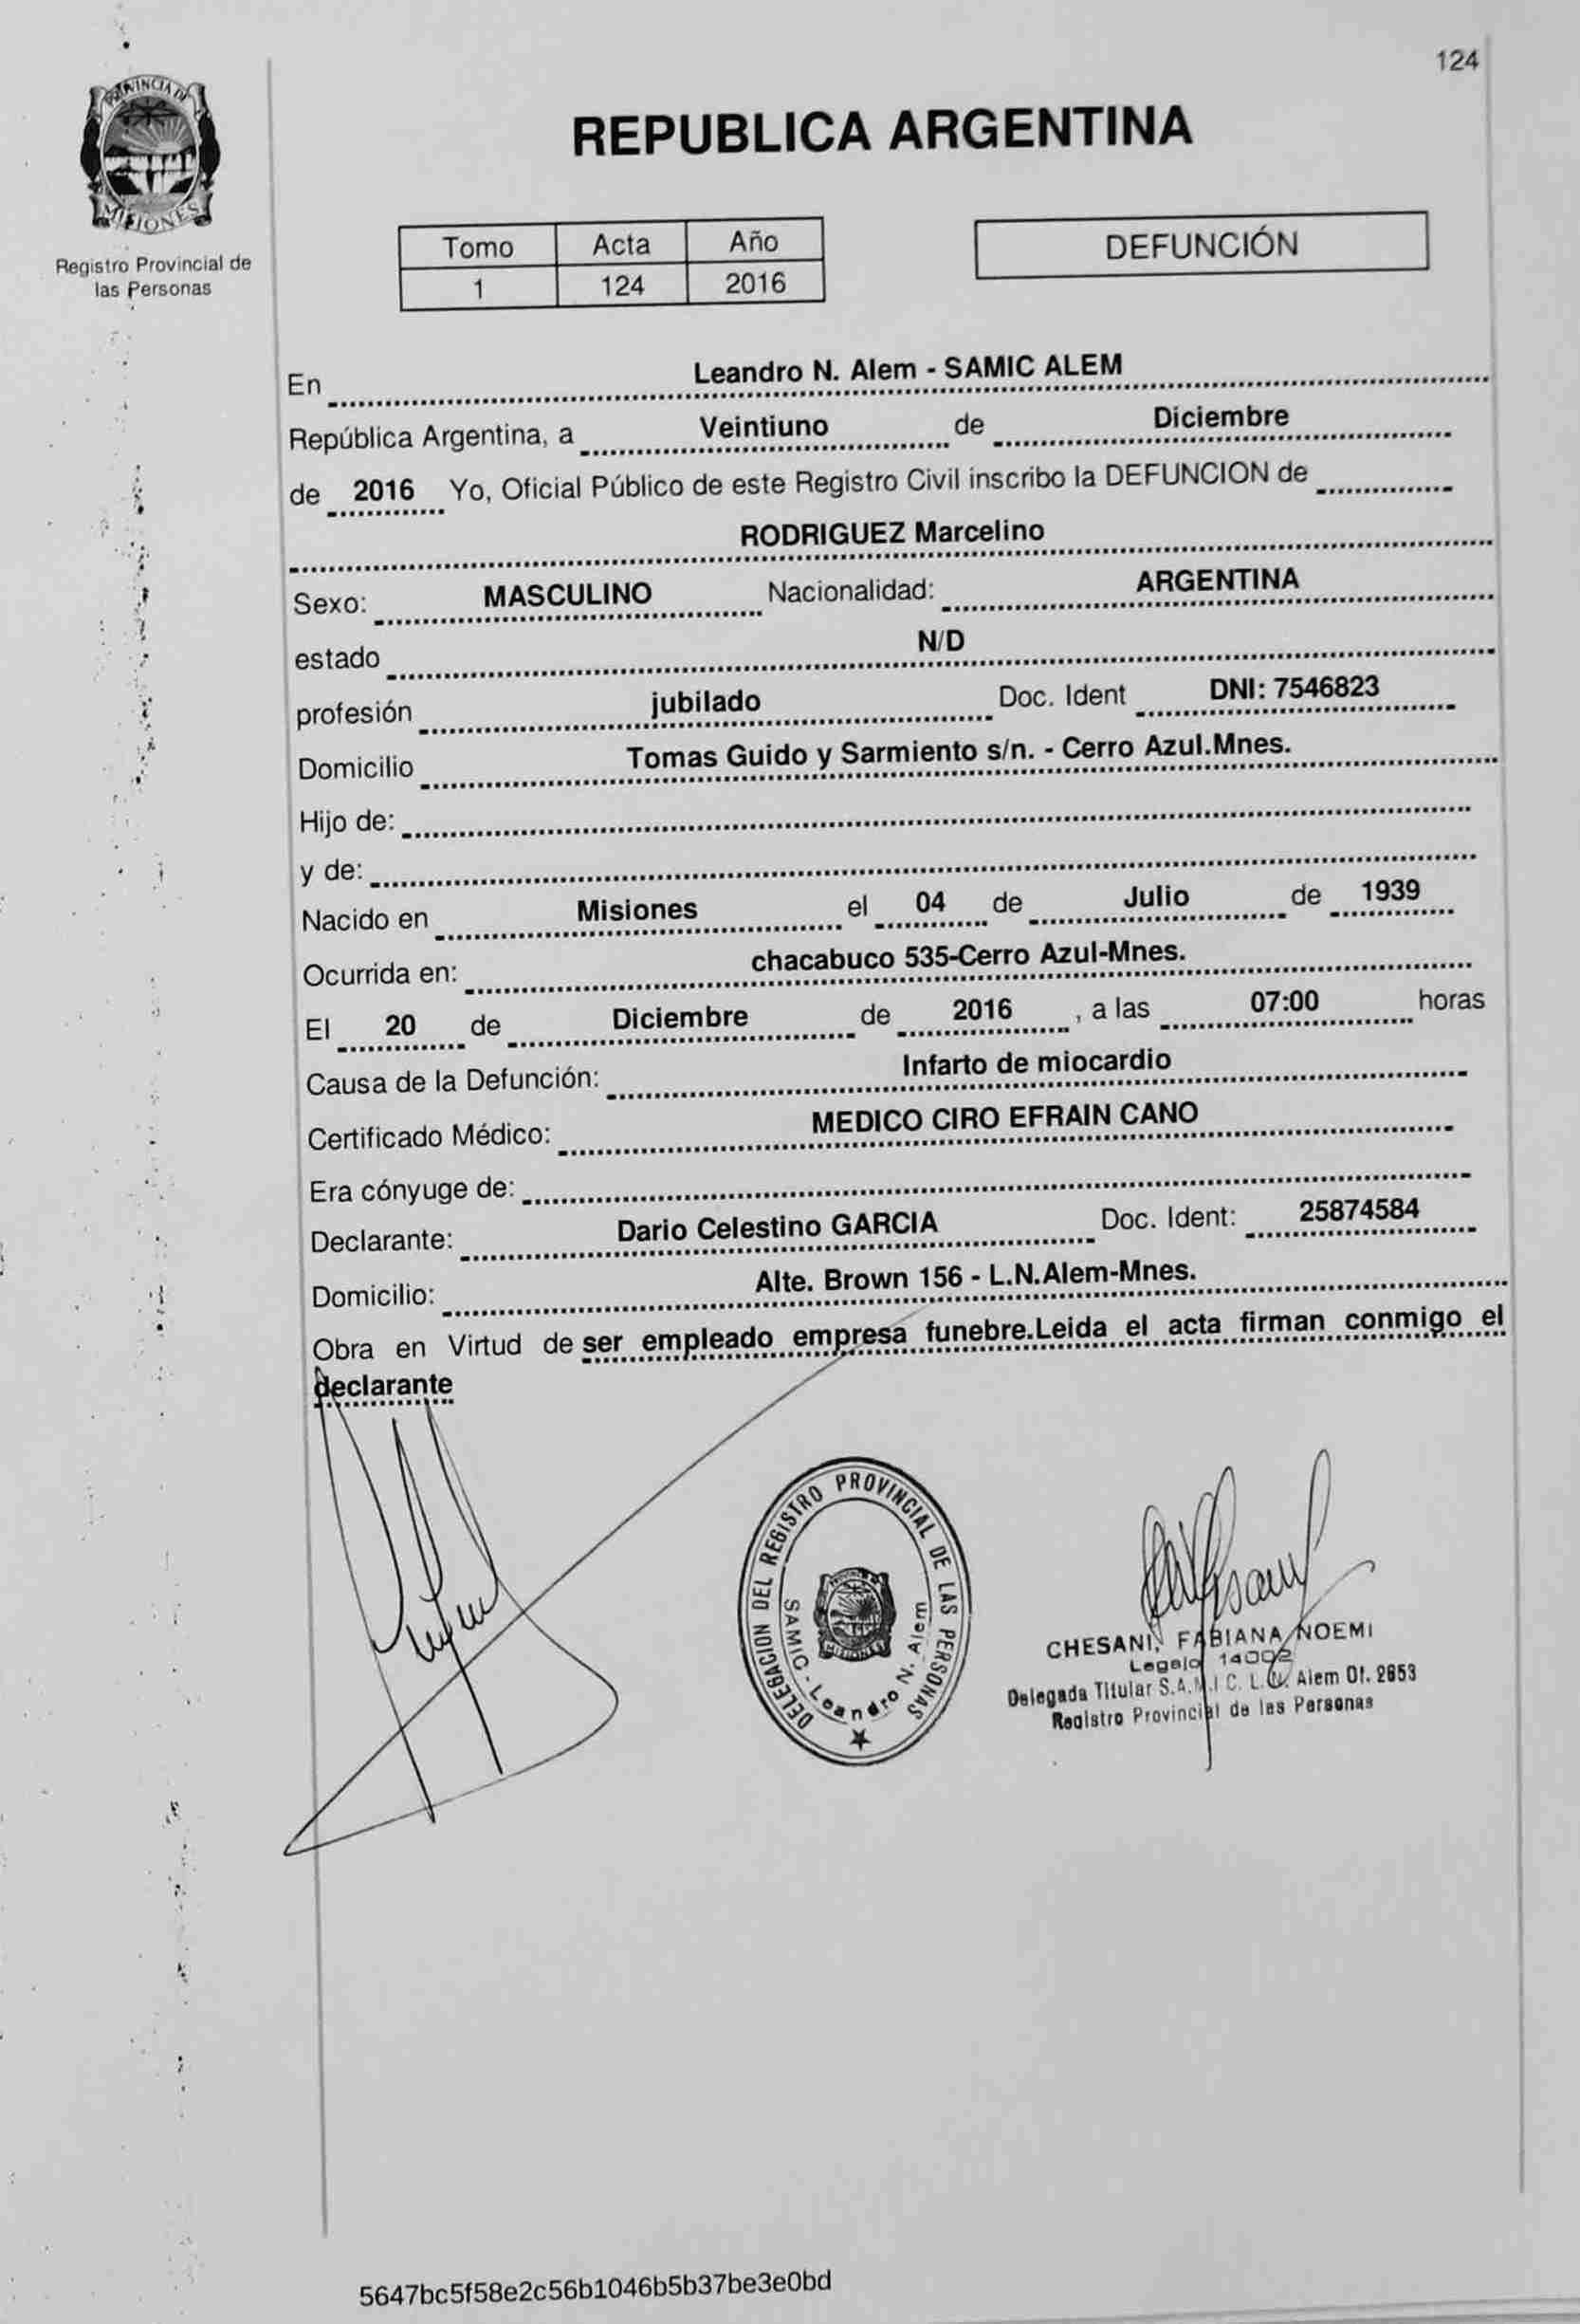 124
PROVINCIA DE
MISIONES
Registro Provincial de
las Personas
REPUBLICA ARGENTINA
Tomo Acta Año
1 124 2016
DEFUNCIÓN
En Leandro N. Alem - SAMIC ALEM
República Argentina, a Veintiuno de Diciembre
de 2016 Yo, Oficial Público de este Registro Civil inscribo la DEFUNCION de
RODRIGUEZ Marcelino
Sexo: MASCULINO Nacionalidad: ARGENTINA
estado N/D
profesión jubilado Doc. Ident DNI: 7546823
Domicilio Tomas Guido y Sarmiento s/n. - Cerro Azul.Mnes.
Hijo de:
y de:
Nacido en Misiones el 04 de Julio de 1939
Ocurrida en: chacabuco 535-Cerro Azul-Mnes.
El 20 de Diciembre de 2016 , a las 07:00 horas
Causa de la Defunción: Infarto de miocardio
Certificado Médico: MEDICO CIRO EFRAIN CANO
Era cónyuge de:
Declarante: Dario Celestino GARCIA Doc. Ident: 25874584
Domicilio: Alte. Brown 156 - L.N.Alem-Mnes.
Obra en Virtud de ser empleado empresa funebre.Leida el acta firman conmigo el
declarante
DELEGACION DEL REGISTRO PROVINCIAL DE LAS PERSONAS
SAMIC - Leandro N. Alem
CHESANI, FABIANA NOEMI
Legajo 14002
Delegada Titular S.A.M.I.C. L.N. Alem Of. 2653
Registro Provincial de las Personas
5647bc5f58e2c56b1046b5b37be3e0bd